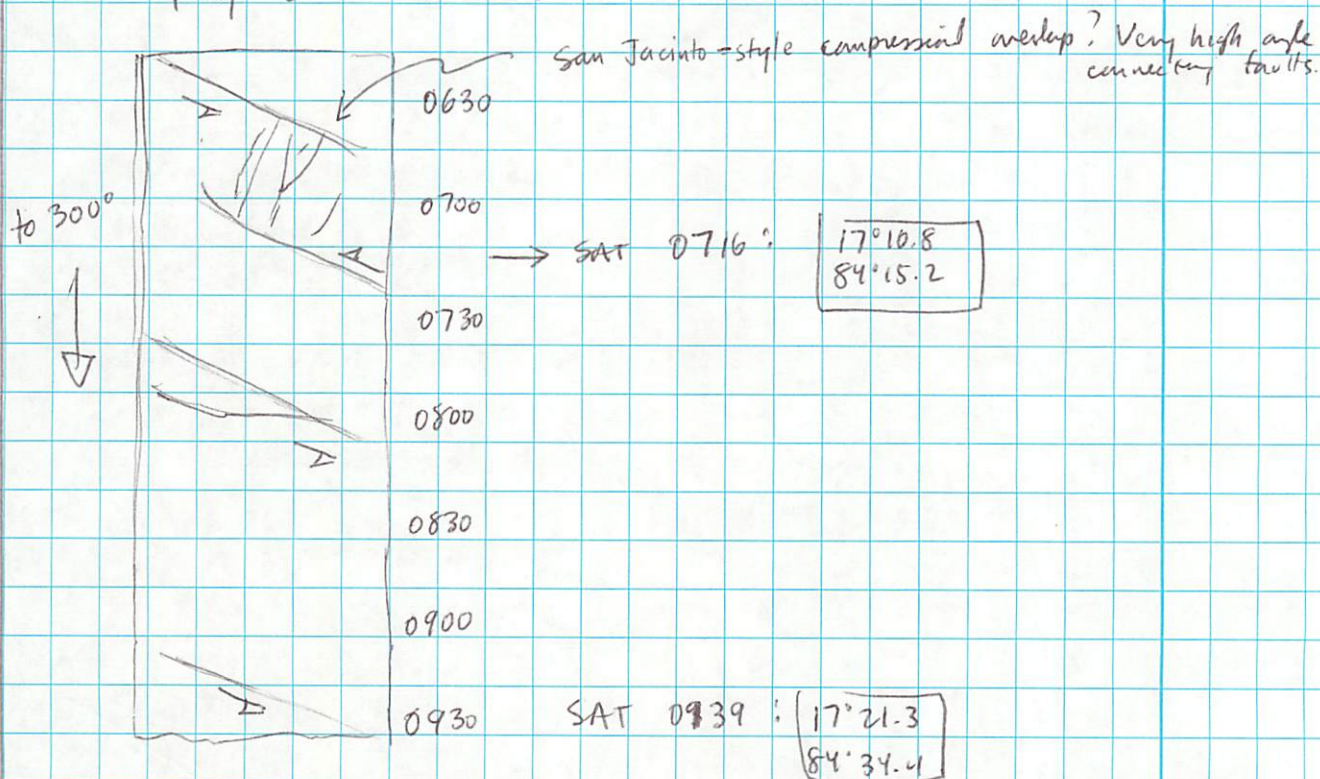 San Jacinto-style compressional overlap? Very high angle
connecting faults.
0630
0700
to 300°
→ SAT 0716: 17°10.8
84°15.2
0730
0800
0830
0900
0930
SAT 0939: 17°21.3
84°34.4